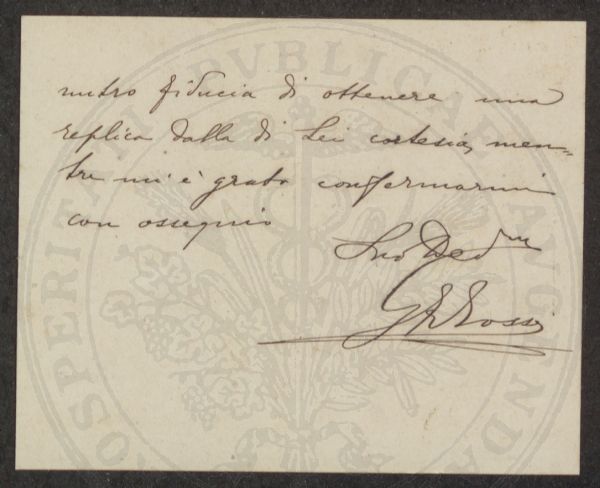 nutro fiducia di ottenere una
replica dalla di Lei cortesia, men=
tre mi è grato confermarmi
con ossequio
Suo Dedmo
Rossi
PROSPERITATI PVBLICAE AVGENDAE